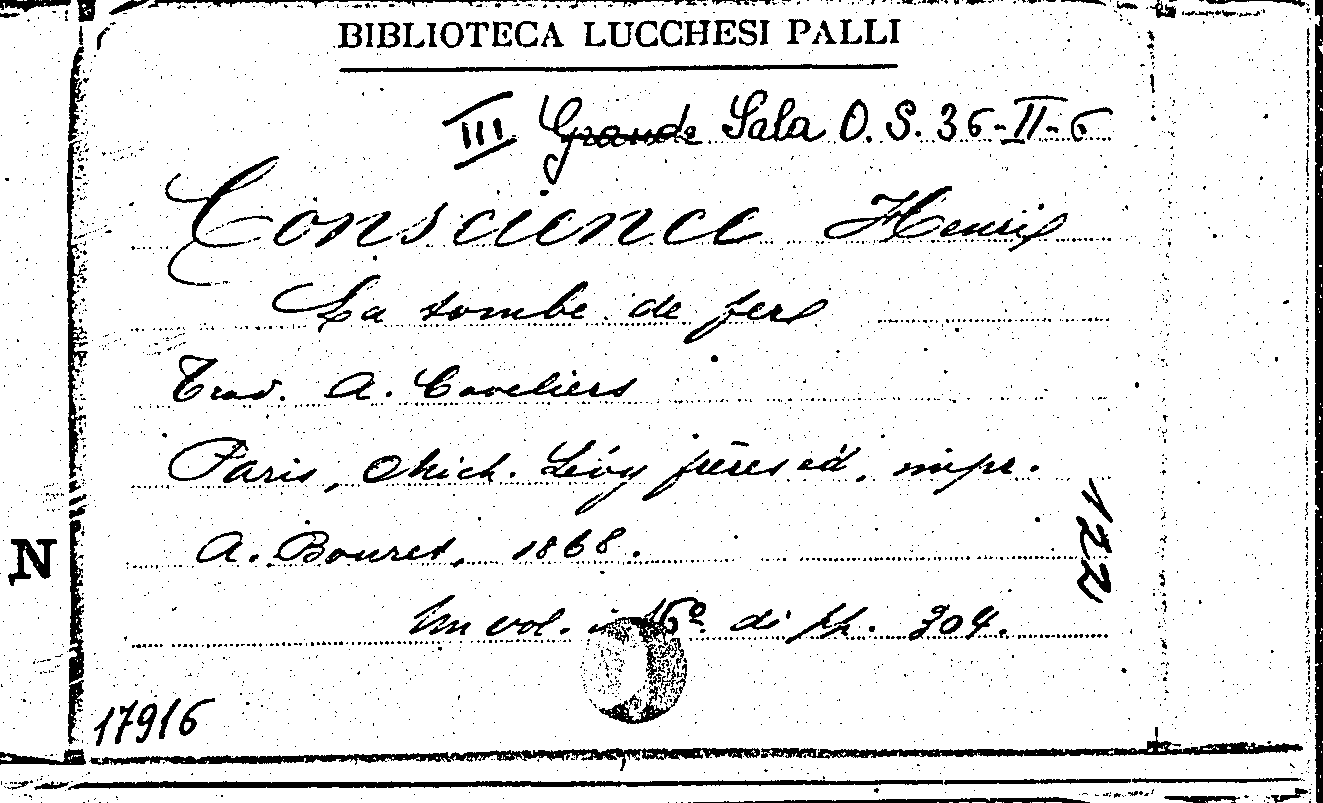 BIBLIOTECA LUCCHESI PALLI
III Grande Sala O. S. 36-II-6
Conscience Henri
La tombe de fer
Trad. A. Coveliers
Paris, Mich. Lévy frères éd. impr.
A. Bouret, 1868.
122
N
Un vol. in 16º di pp. 304.
17916